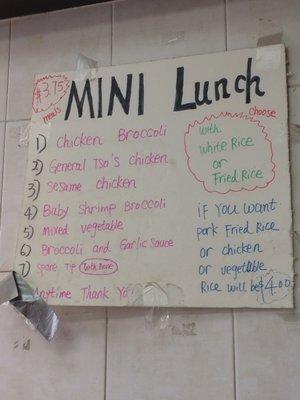 $3.75
meals
MINI Lunch
choose
with
white Rice
or
Fried Rice
1) Chicken Broccoli
2) General Tso's chicken
3) Sesame chicken
4) Baby shrimp Broccoli
5) mixed vegetable
6) Broccoli and Garlic Sauce
7) Spare Tip
Anytime Thank You
if you want
pork Fried Rice
or chicken
or vegetable
Rice will be $4.00